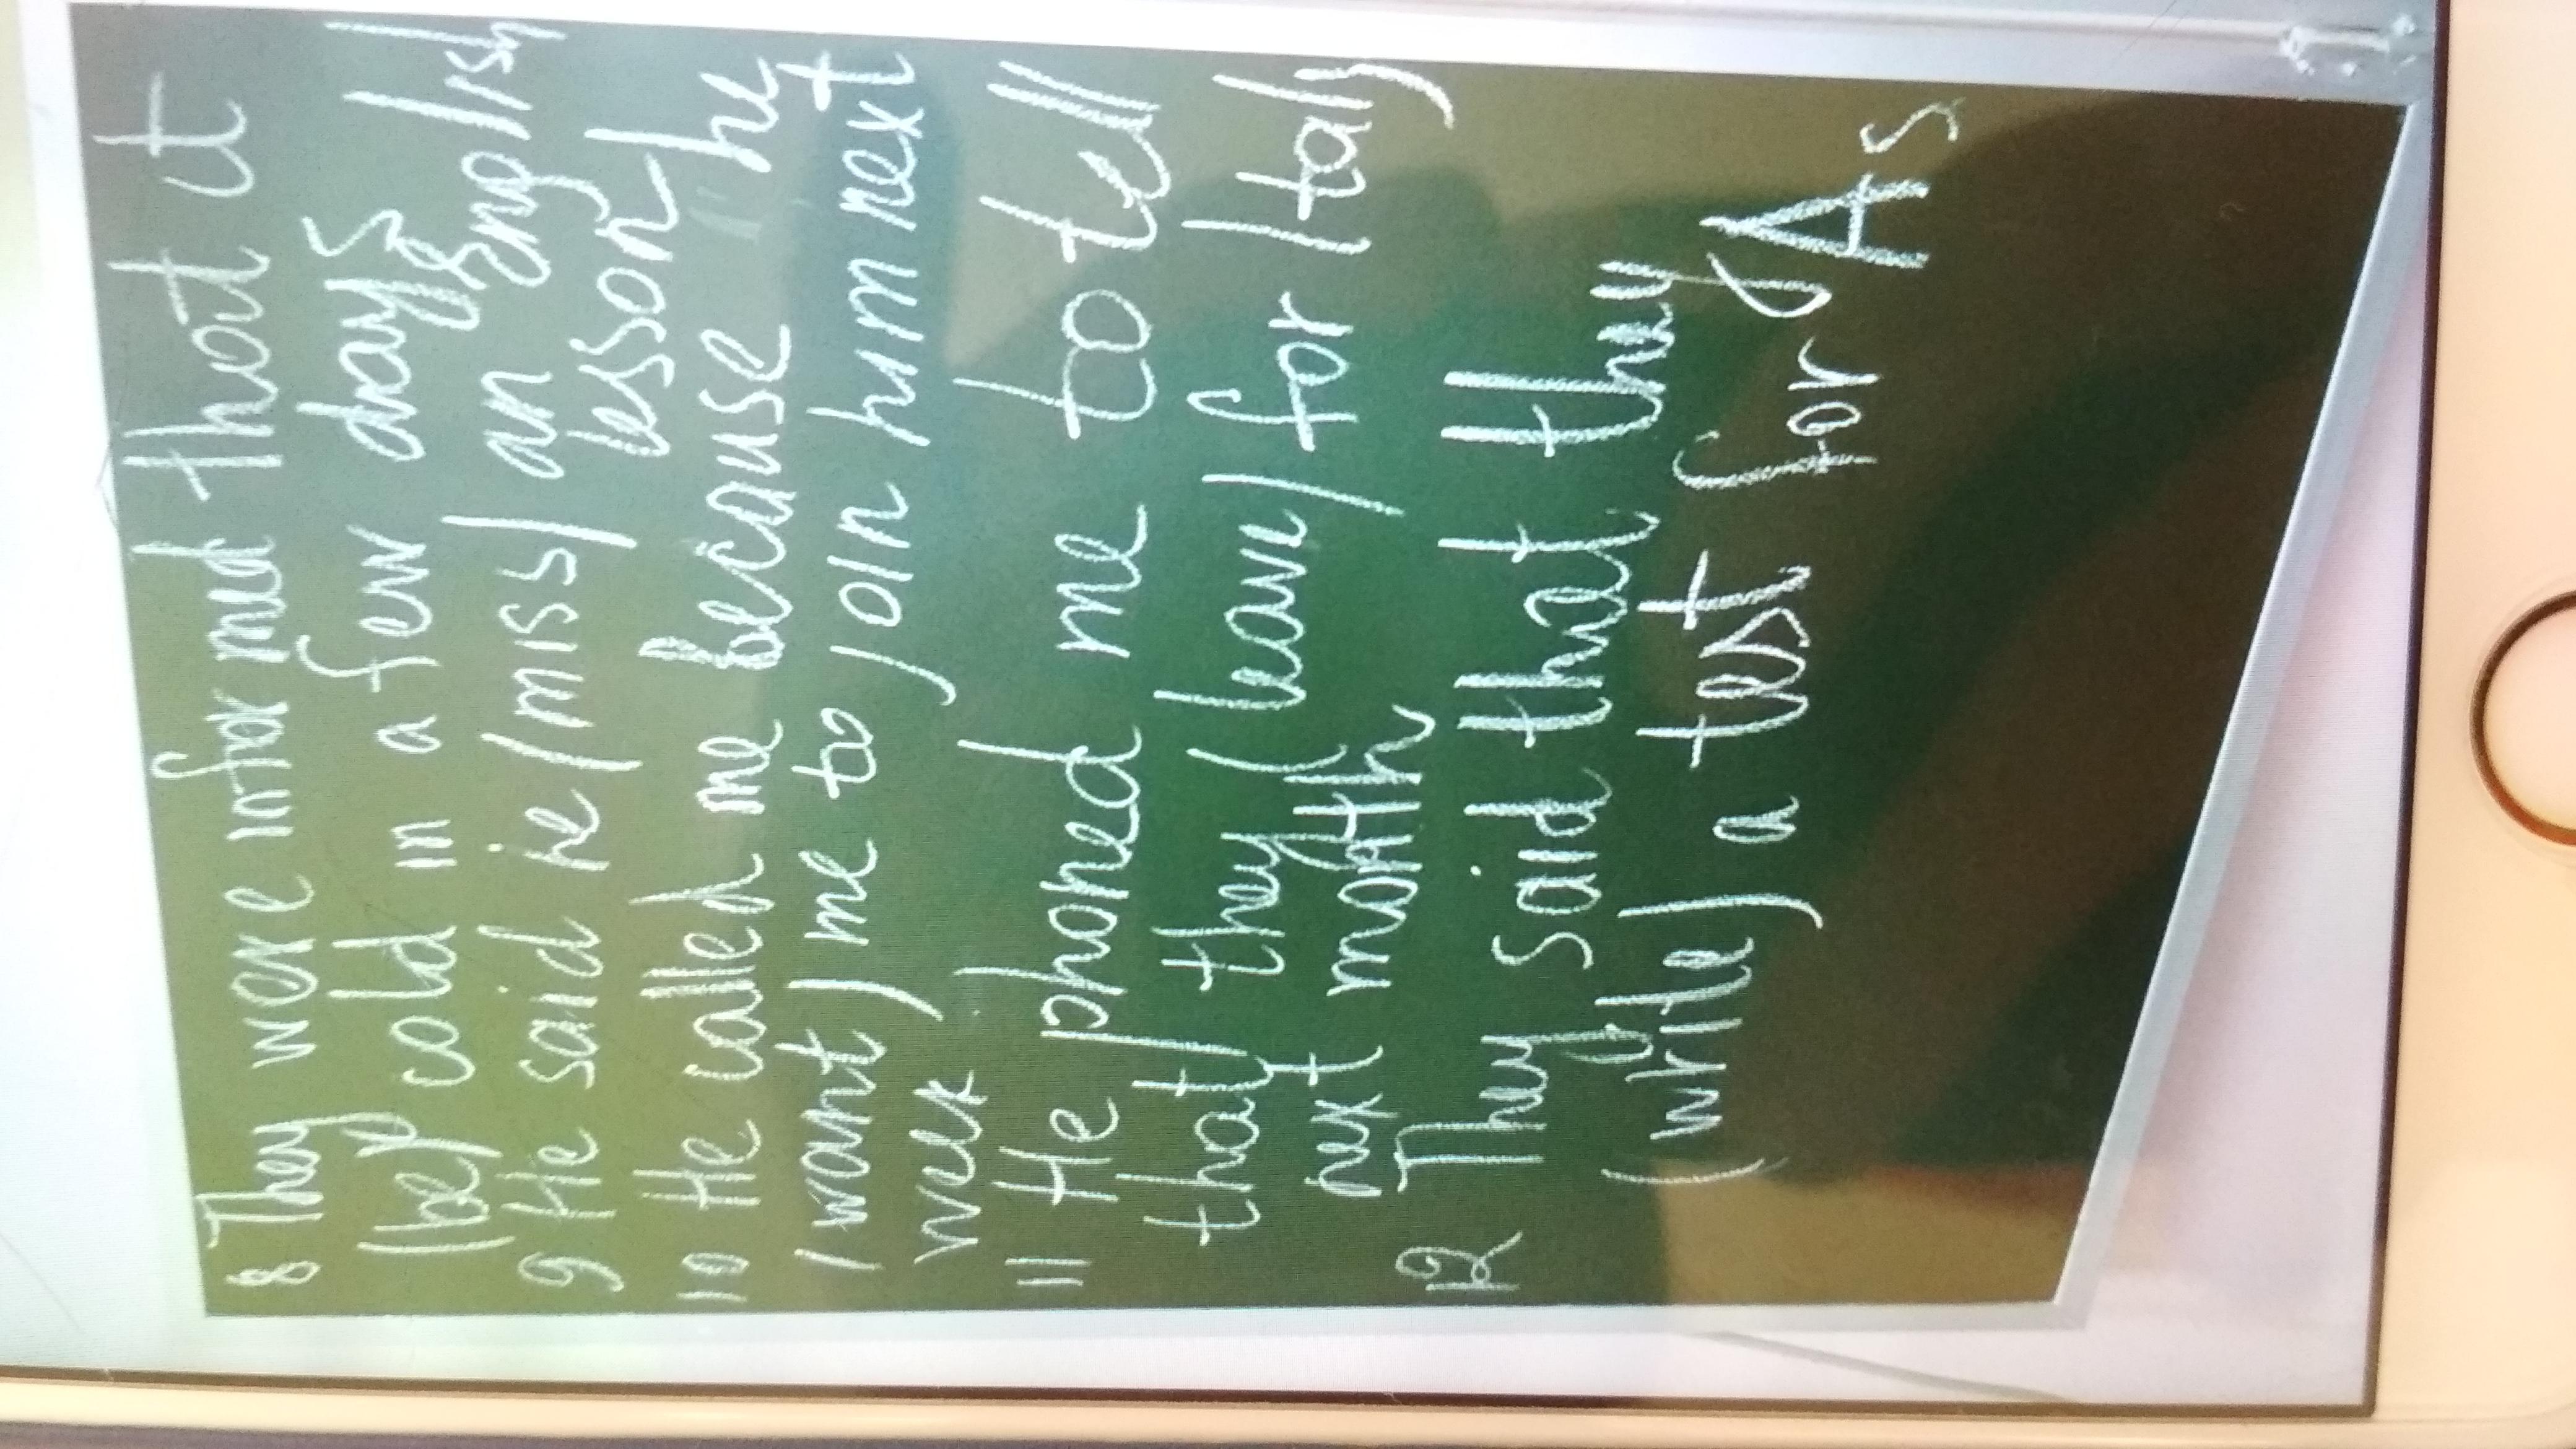 8 They were informed that it
(be) cold in a few days
9 He said he (miss) an English
lesson
10 He called me because he
(want) me to join him next
week
11 He phoned me to tell
that) they (leave) for Italy
next month
12 They said that they
(write) a test for As